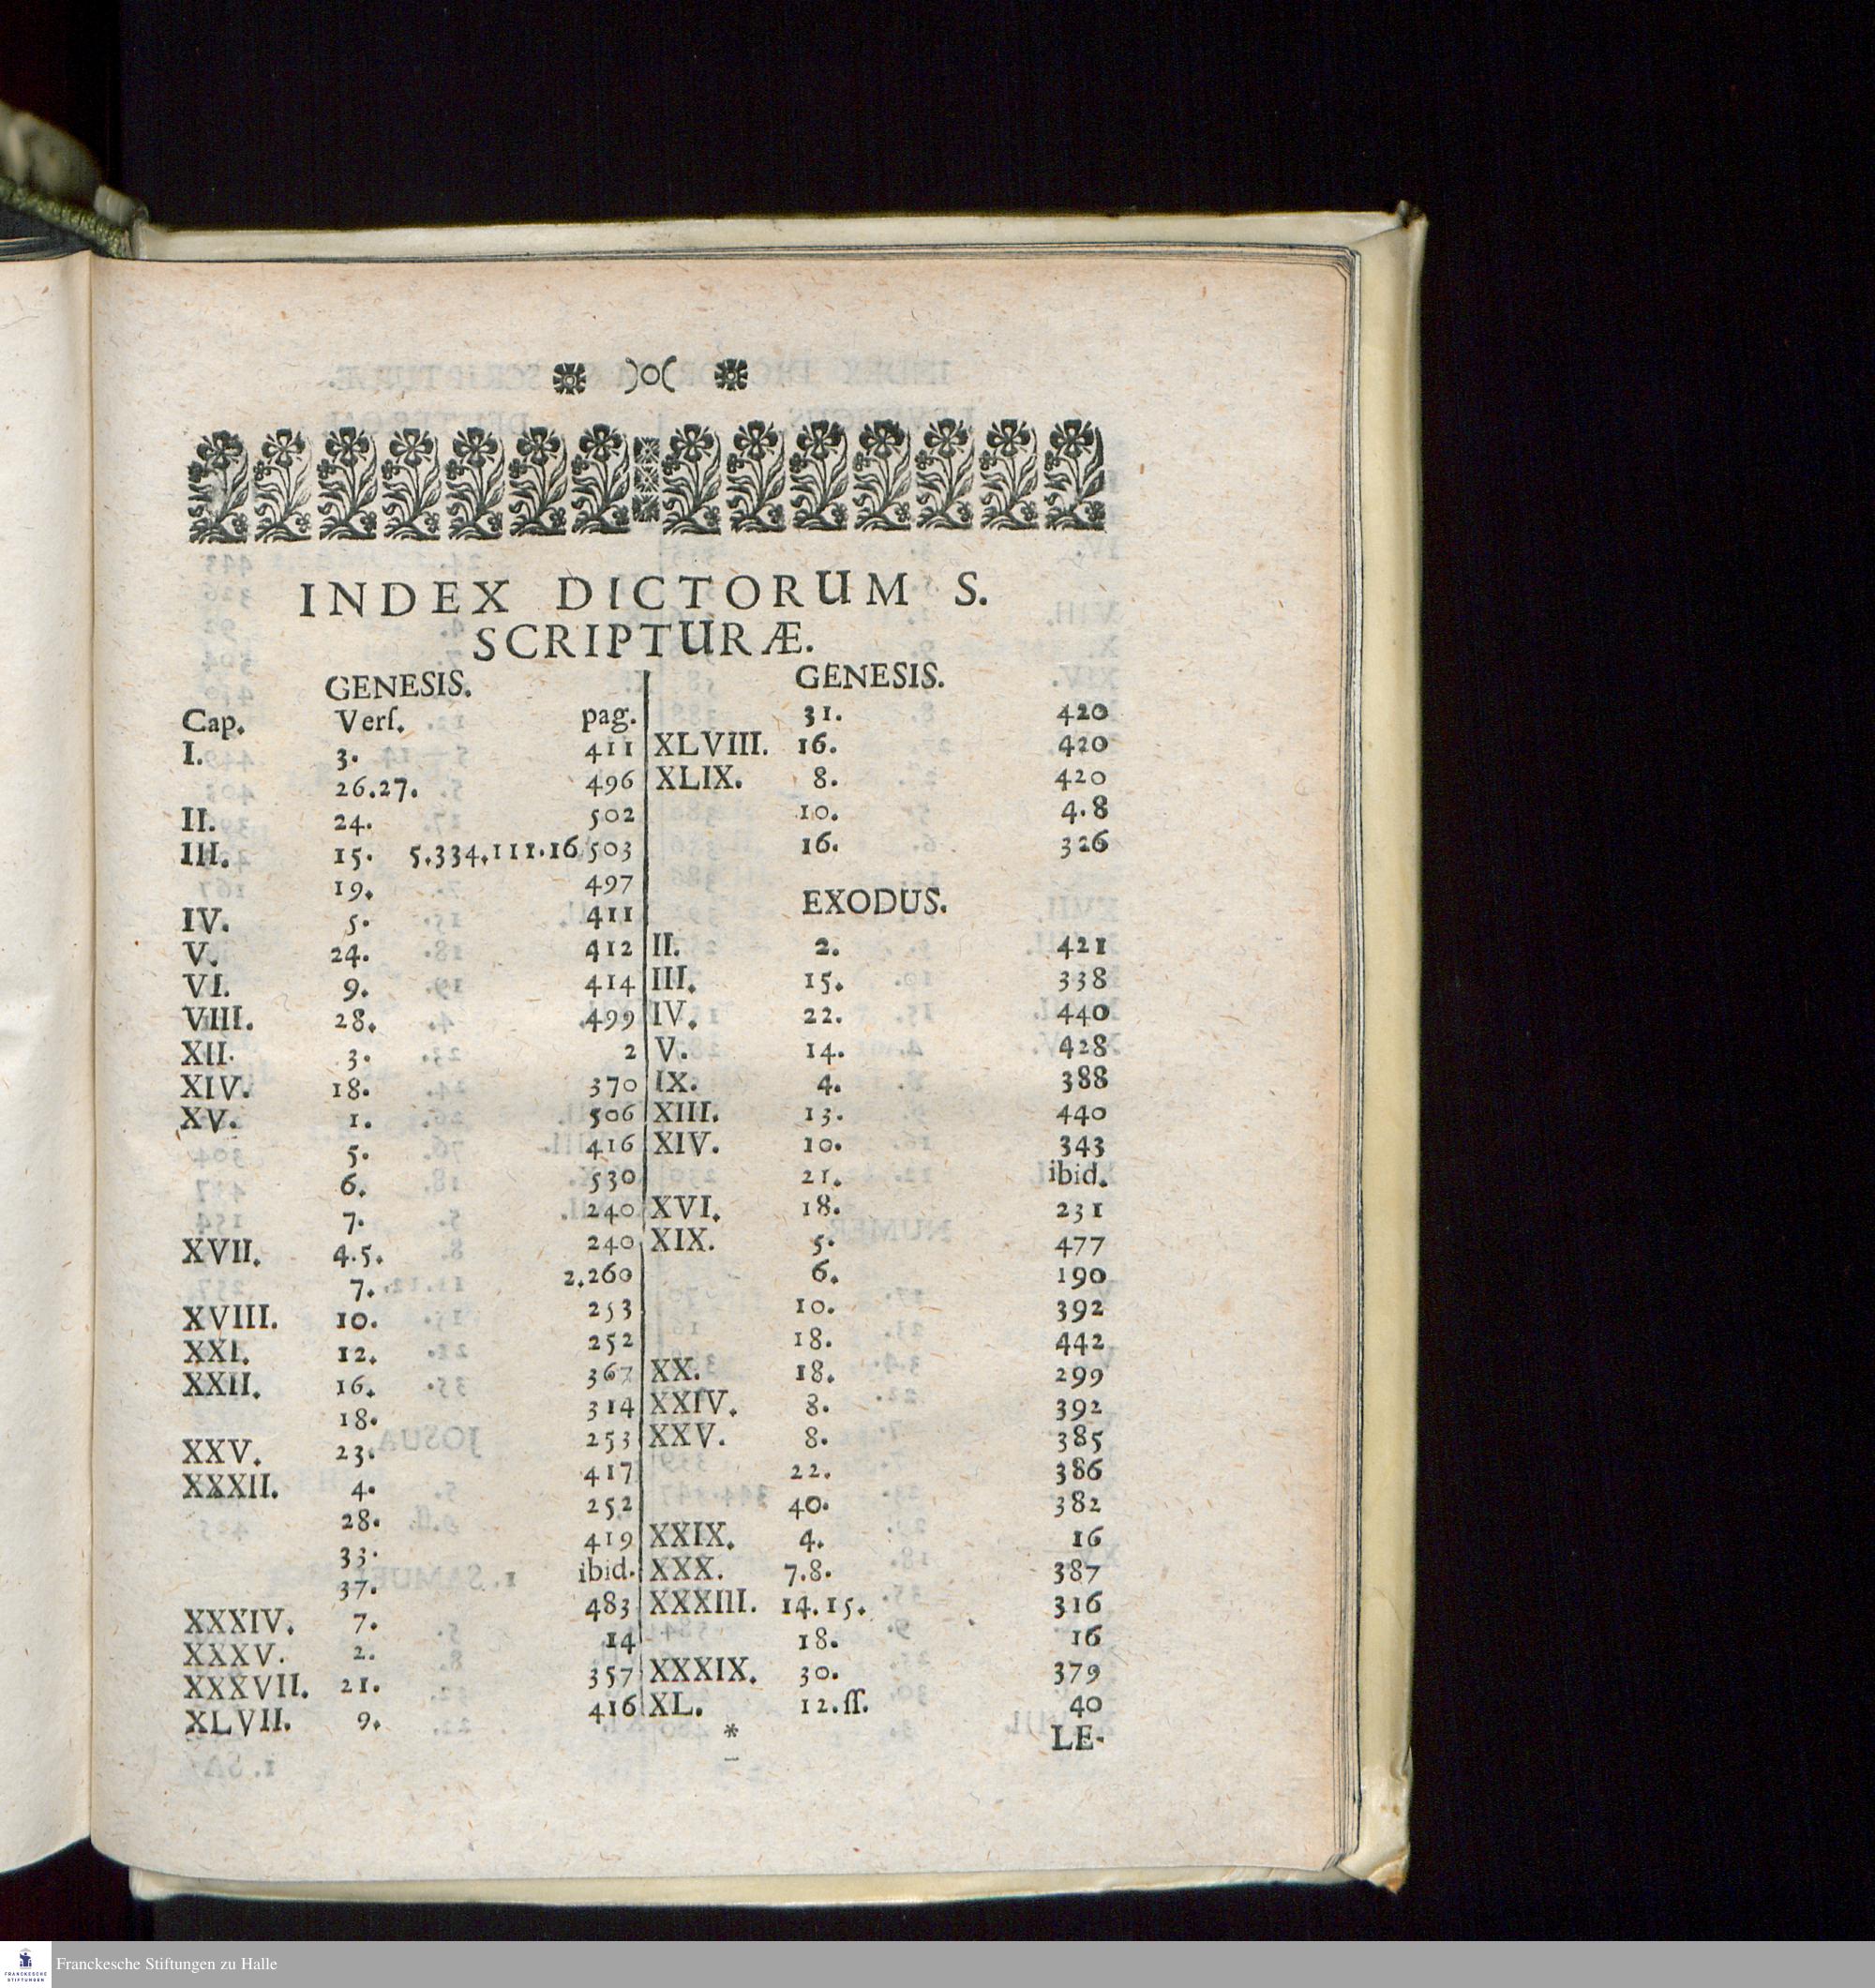 )o(
INDEX DICTORUM S.
SCRIPTURÆ.
GENESIS.
Cap. Verſ. pag.
I. 3. 411
26.27. 496
II. 24. 502
III. 15. 5.334.111.16 503
19. 497
IV. 5. 411
V. 24. 412
VI. 9. 414
VIII. 28. 499
XII. 3. 2
XIV. 18. 370
XV. 1. 506
5. 416
6. 530
7. 240
XVII. 4.5. 240
7. 2.260
XVIII. 10. 253
XXI. 12. 252
XXII. 16. 367
18. 314
XXV. 23. 253
XXXII. 4. 417
28. 252
33. 419
37. ibid.
XXXIV. 7. 483
XXXV. 2. 14
XXXVII. 21. 357
XLVII. 9. 416
GENESIS.
31. 420
XLVIII. 16. 420
XLIX. 8. 420
10. 4.8
16. 326
EXODUS.
II. 2. 421
III. 15. 338
IV. 22. 440
V. 14. 428
IX. 4. 388
XIII. 13. 440
XIV. 10. 343
21. ibid.
XVI. 18. 231
XIX. 5. 477
6. 190
10. 392
18. 442
XX. 18. 299
XXIV. 8. 392
XXV. 8. 385
22. 386
40. 382
XXIX. 4. 16
XXX. 7.8. 387
XXXIII. 14.15. 316
18. 16
XXXIX. 30. 379
XL. 12.ſſ. 40
* LE-
FRANCKESCHE
STIFTUNGEN
Franckesche Stiftungen zu Halle